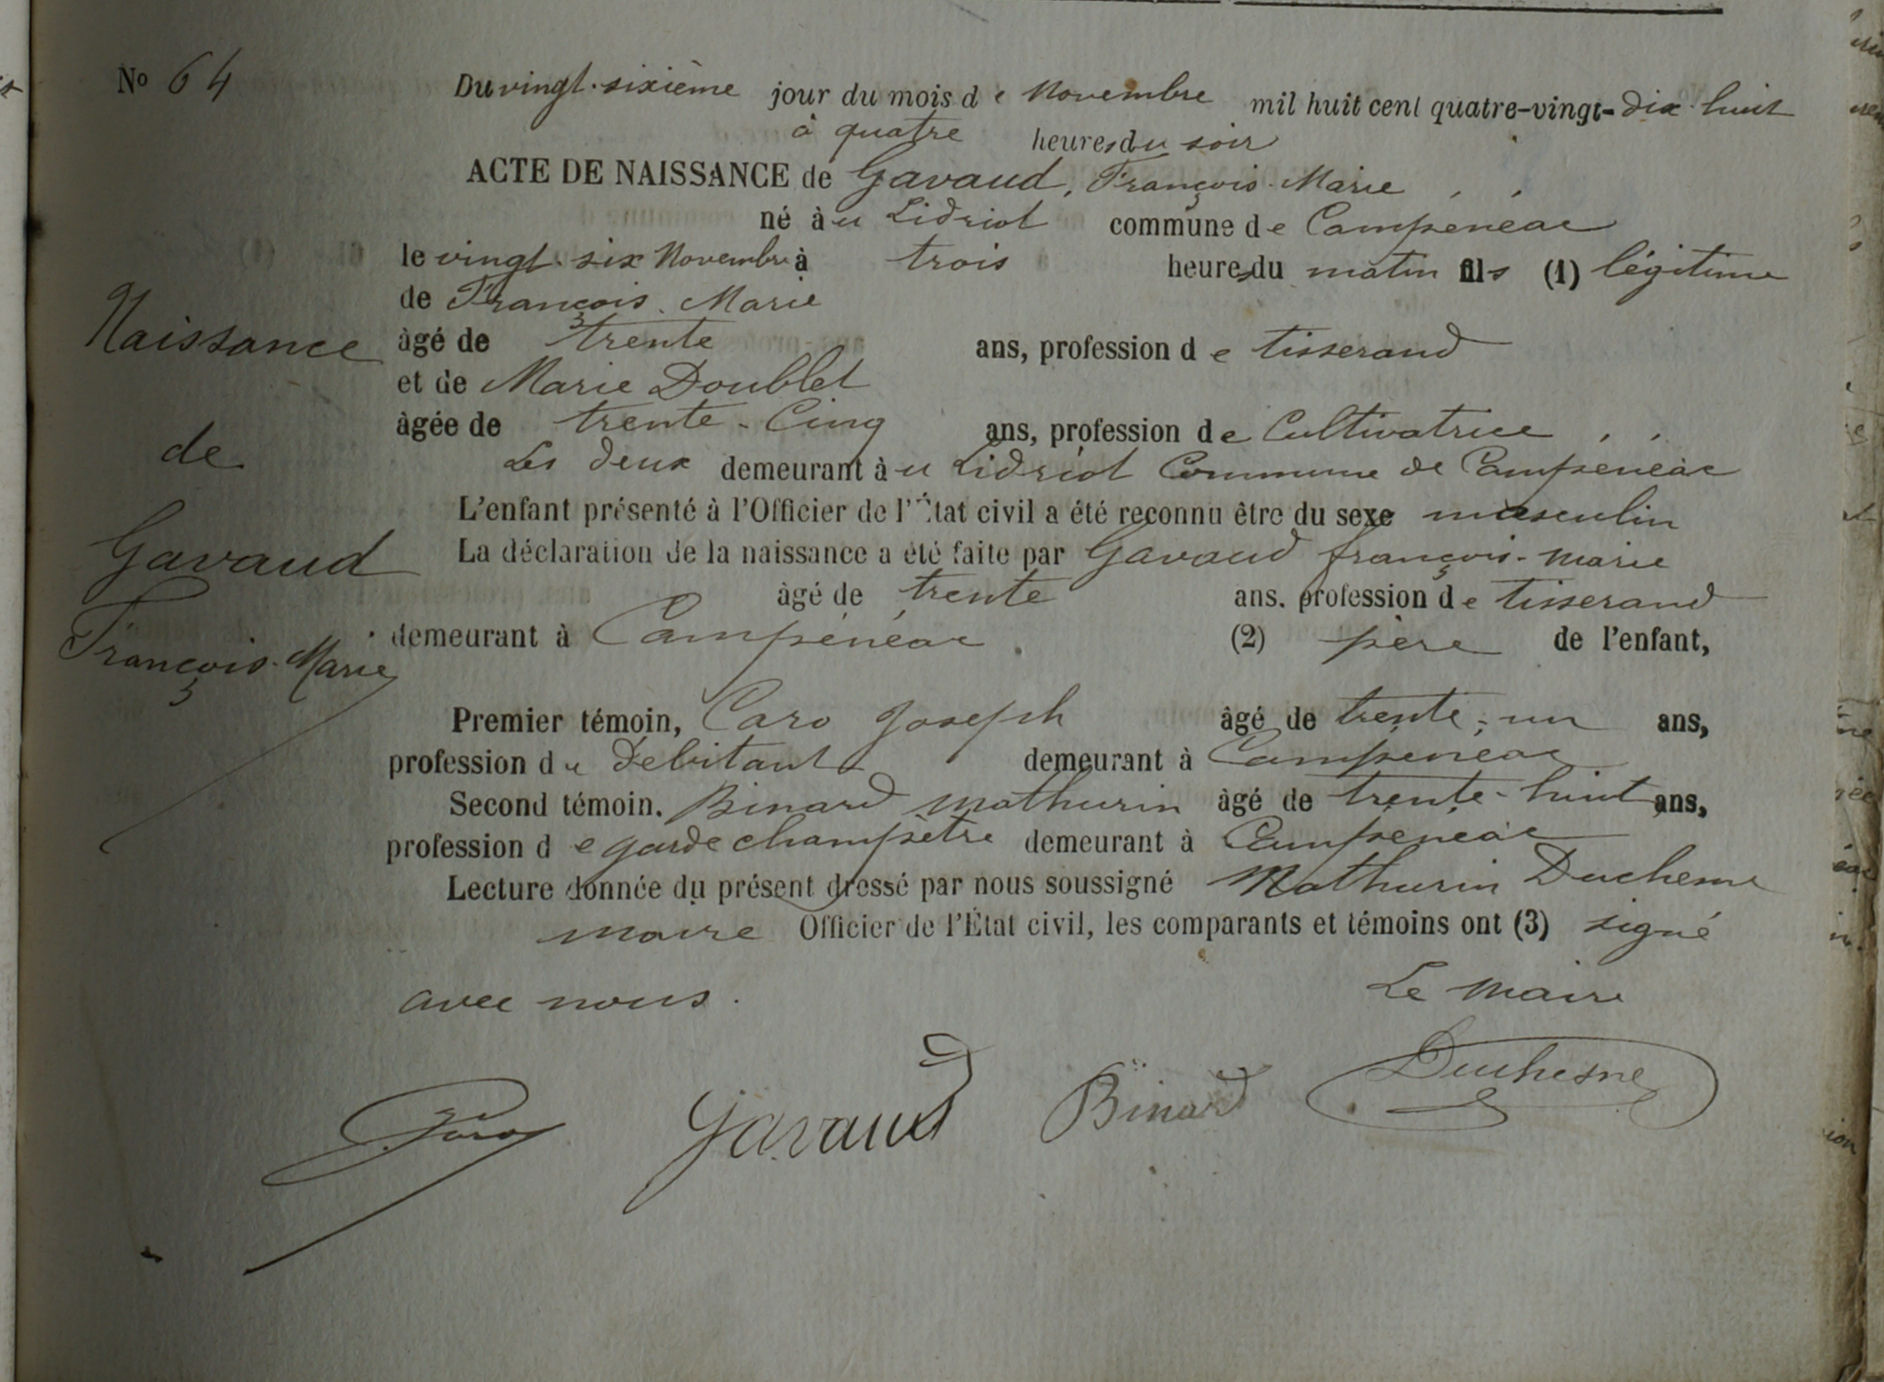 No 64
Du vingt-sixième jour du mois de Novembre mil huit cent quatre-vingt-dix-huit
à quatre heures du soir
ACTE DE NAISSANCE de Gavaud, François-Marie
né à u Lidriot commune de Campénéac
le vingt-six Novembre à trois heures du matin fils (1) légitime
de François-Marie
âgé de trente ans, profession de tisserand
et de Marie Doublet
âgée de trente-Cinq ans, profession de Cultivatrice
Les deux demeurant à u Lidriot Commune de Campénéac
L'enfant présenté à l'Officier de l'État civil a été reconnu être du sexe masculin
La déclaration de la naissance a été faite par Gavaud françois-marie
âgé de trente ans, profession de tisserand
demeurant à Campénéac (2) père de l'enfant,
Premier témoin, Caro Joseph âgé de trente-un ans,
profession de Débitant demeurant à Campénéac
Second témoin. Binard Mathurin âgé de trente-huit ans,
profession de garde champêtre demeurant à Campénéac
Lecture donnée du présent dressé par nous soussigné Mathurin Duchesne
maire Officier de l'État civil, les comparants et témoins ont (3) signé
avec nous.
Le maire
Caro Gavaud Binard Duchesne
Naissance
de
Gavaud
François-Marie